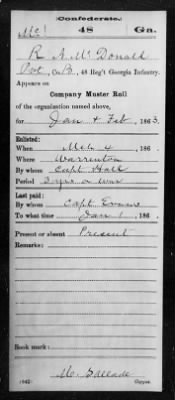 Confederate.
Mc 48 Ga.
R. A. McDonald
Pvt, Co. B, 48 Reg't Georgia Infantry.
Appears on
Company Muster Roll
of the organization named above,
for Jan & Feb, 1863.
Enlisted:
When Mch 4, 186
Where Warrenton
By whom Capt Hall
Period 3 yrs or war
Last paid:
By whom Capt Evans
To what time Jan 1, 186
Present or absent Present
Remarks:
Book mark:
(642)
Copyist.